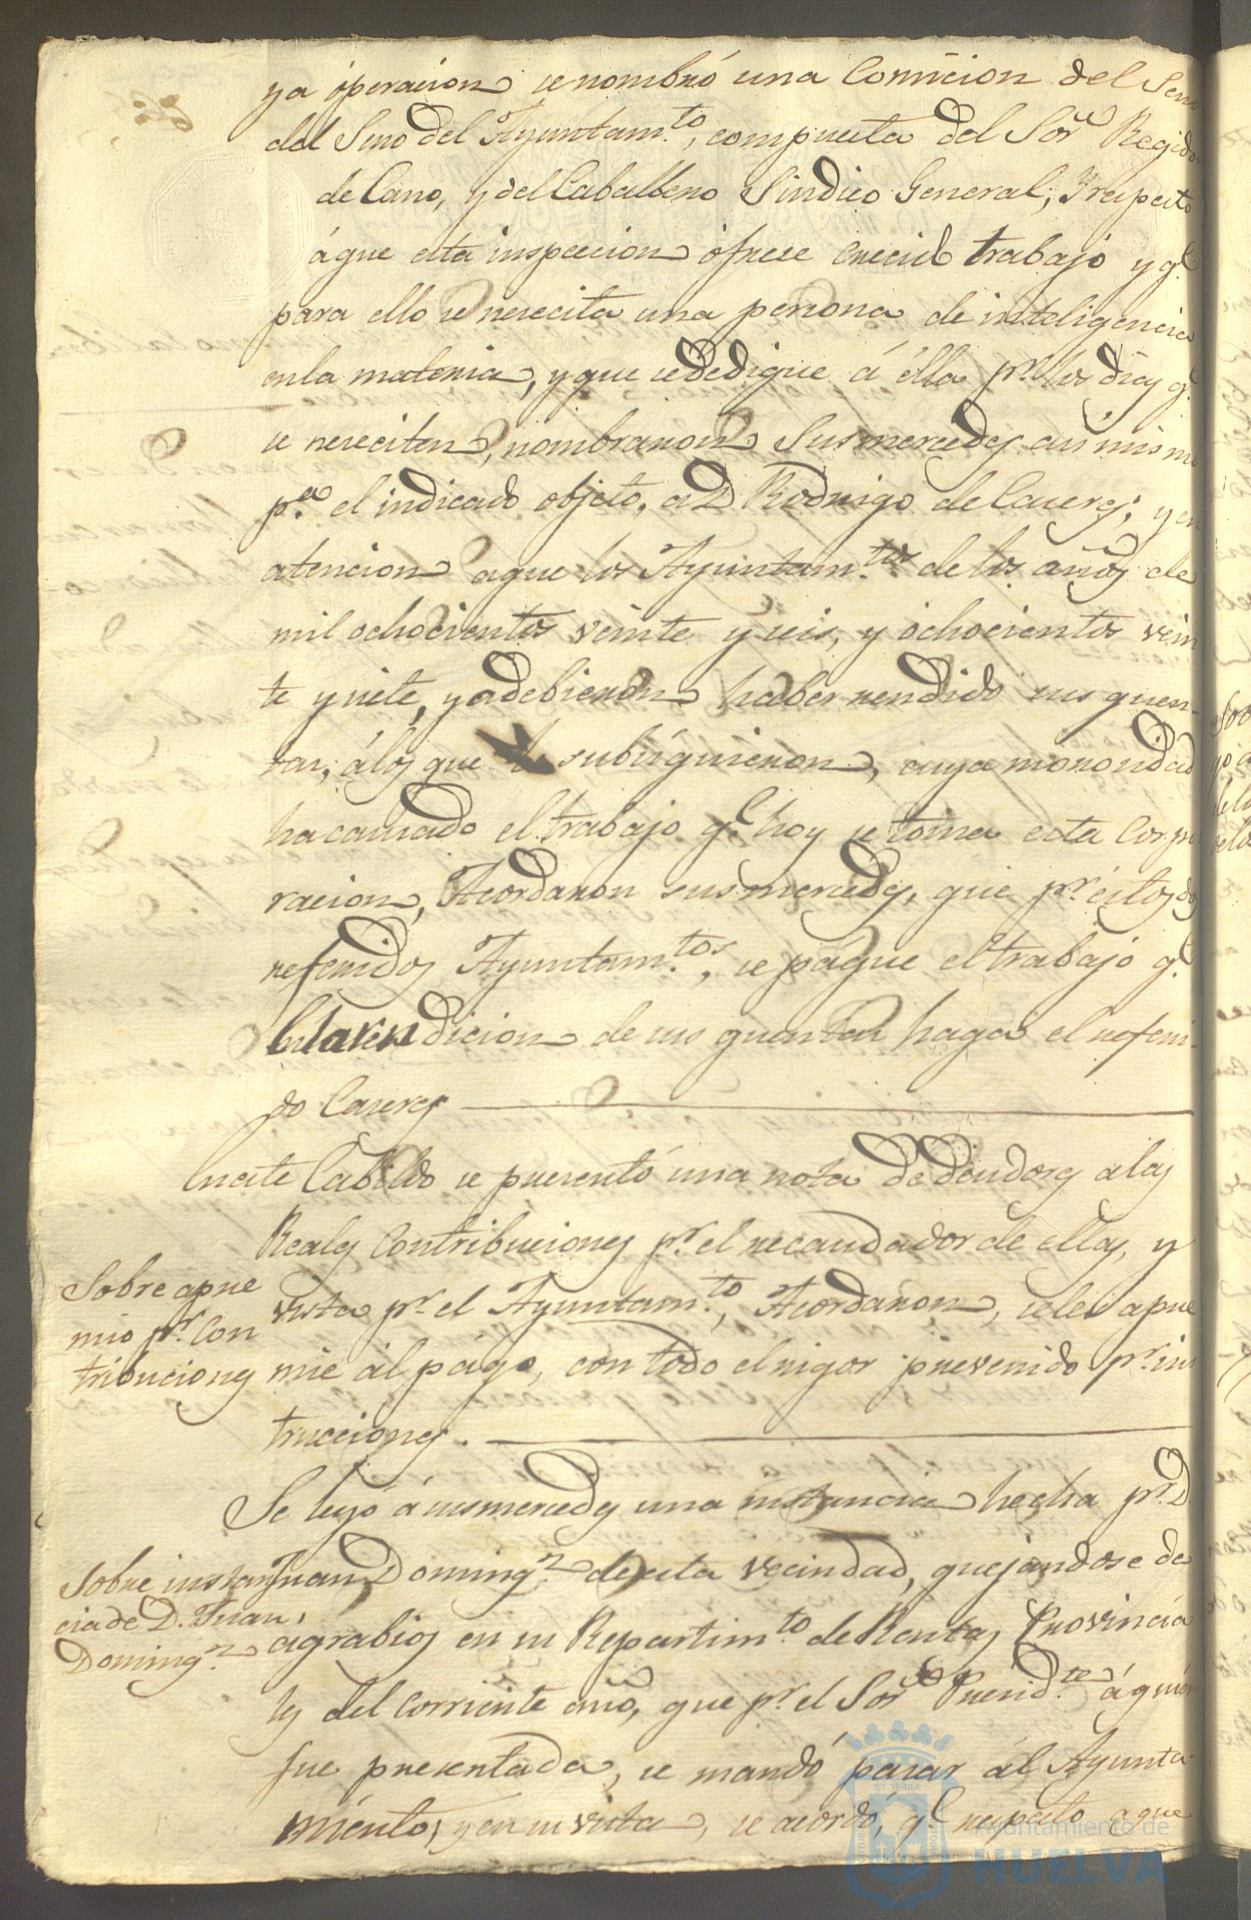 ya óperacion se nombró una Comicion del Seno
del Seno del Ayuntam.to, compuesta del Sor Regidor
de Cano, y del Caballero Sindico General; Y respecto
á que esta inspeccion ófrece crecido trabajo y q.e
para ello se nesecita una persona de inteligencia
en la materia, y que se dedique á élla p.r los días q.e
se neseciten, nombraron Susmercedes asi mismo
p.a el indicado objeto, a D Rodrigo de Caseres; y en
atencion a que los Ayuntam.tos de los años de
mil ochocientos veinte y seis, y ochocientos vein
te y siete, ya debieron haber rendido sus quen-
tas, á los que subsiguieron, cuya morosidad
ha causado el trabajo q.e hoy se toma esta Corpo
racion, Acordaron susmercedes, que p.r éstos dos
referidos Ayuntam.tos, se págue el trabajo q.e
en la rendicion de sus quentas haga el referi-
do Caseres
En este Cabildo se presentó una nota de déudores a las
Reales Contribuciones p.r el recaudador de ellas, y
Sobre apre
vista p.r el Ayuntam.to, Acordaron, se les apre
mio p.r Con
tribuciones
mie ál págo, con todo el rigor prevenido p.r ins
trucciones.
Se leyó á susmercedes una instancia hecha p.r D.
Sobre instan
Juan Doming.z de esta vecindad, quejandose de
cia de D. Juan
Doming.z
agrabios en su Repartim.to de Rentas Provincia
les del corriente año, que p.r el Sor Presid.te á quién
fue presentada, se mandó pasar ál Ayunta
miénto; y en su vista, se acordó, q.e respecto a que
Ayuntamiento de
HUELVA